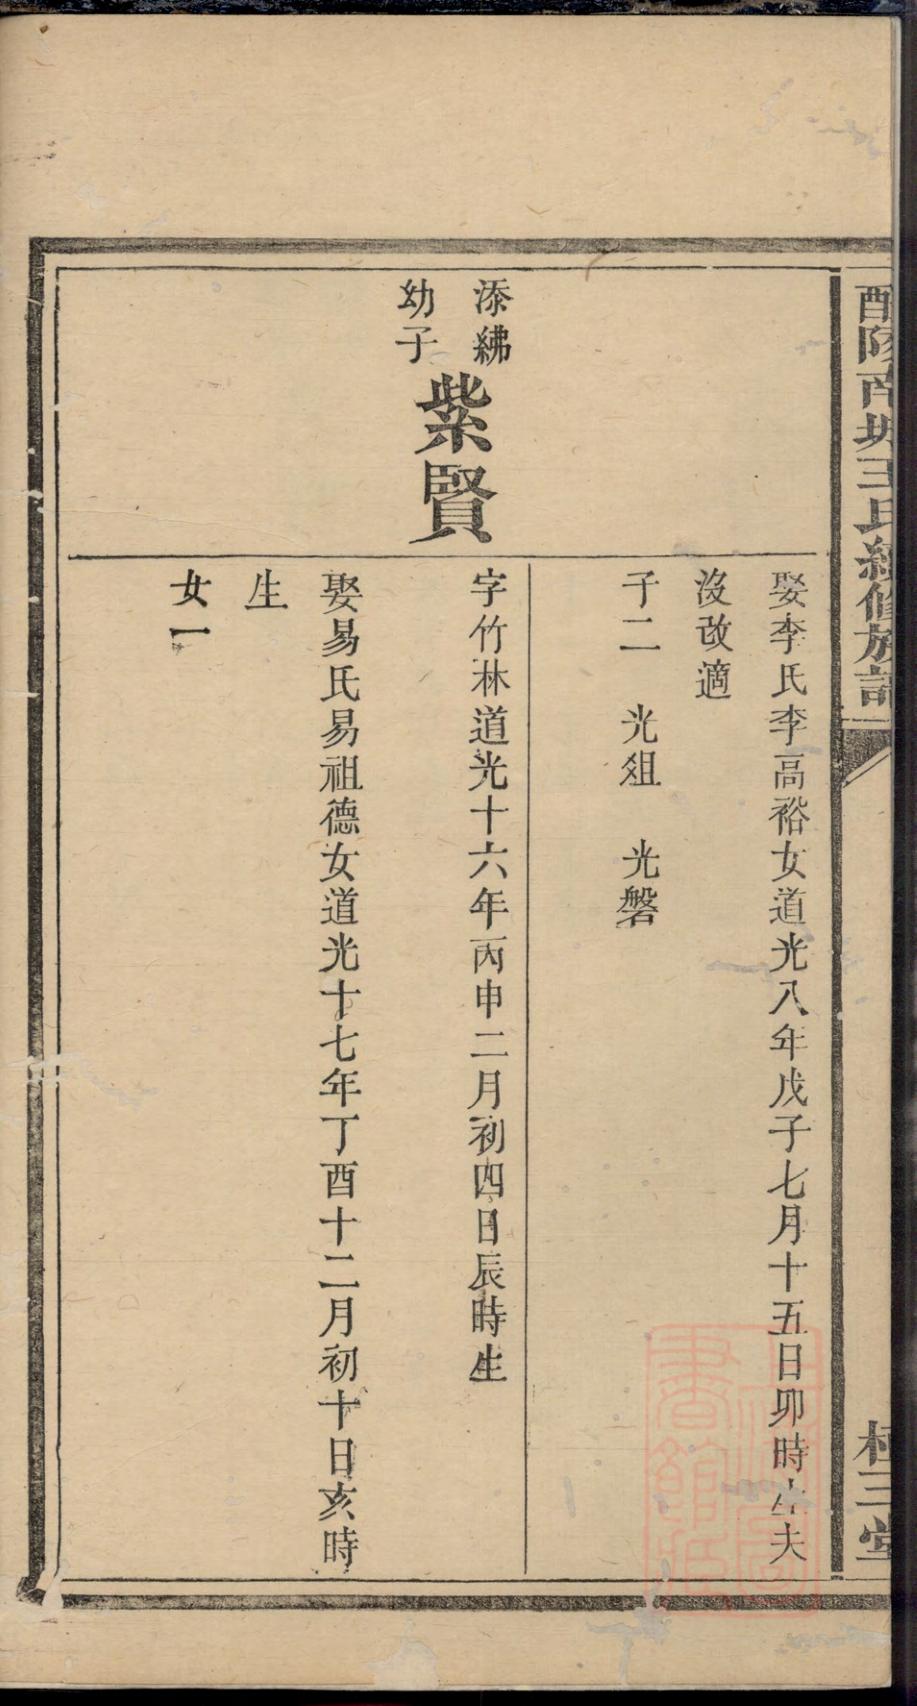 醴陵南城王氏續修族譜
槐三堂
娶李氏李高裕女道光八年戊子七月十五日卯時生夫
沒改適
子二 光俎 光磐
添紼
幼子
紫賢
字竹林道光十六年丙申二月初四日辰時生
娶易氏易祖德女道光十七年丁酉十二月初十日亥時
生
女一